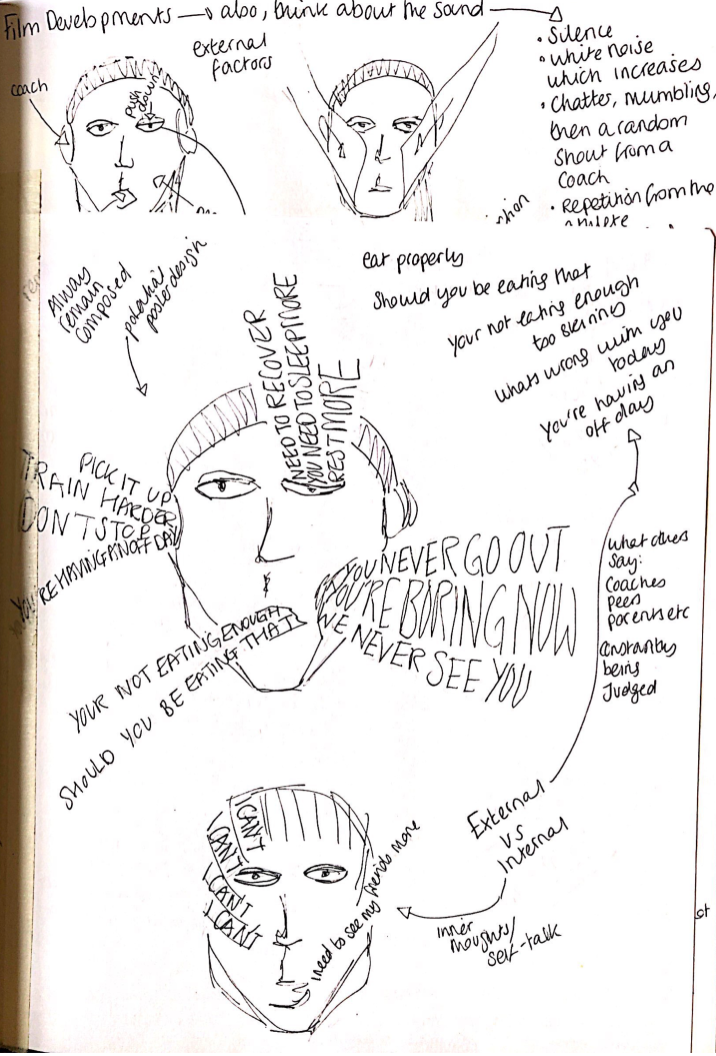 Film Developments → also, think about the sound →
external
factors
coach
push
down
• Silence
• white noise
which increases
• Chatter, mumbling,
then a random
shout from a
coach
• Repetition from the
Always
remain
composed
potential
poster design
eat properly
Should you be eating that
your not eating enough
too skinny
whats wrong with you
today
you're having an
off day
I NEED TO RECOVER
YOU NEED TO SLEEP MORE
REST MORE
PICK IT UP
TRAIN HARDER
DON'T STOP
YOU'RE HAVING AN OFF DAY
YOU NEVER GO OUT
YOU'RE BORING NOW
WE NEVER SEE YOU
YOUR NOT EATING ENOUGH
SHOULD YOU BE EATING THAT
what others
say:
Coaches
peers
parents etc
constantly
being
Judged
External
vs
Internal
inner
thoughts/
self-talk
I CAN'T
I CAN'T
I CAN'T
I CAN'T
I need to see my friends more